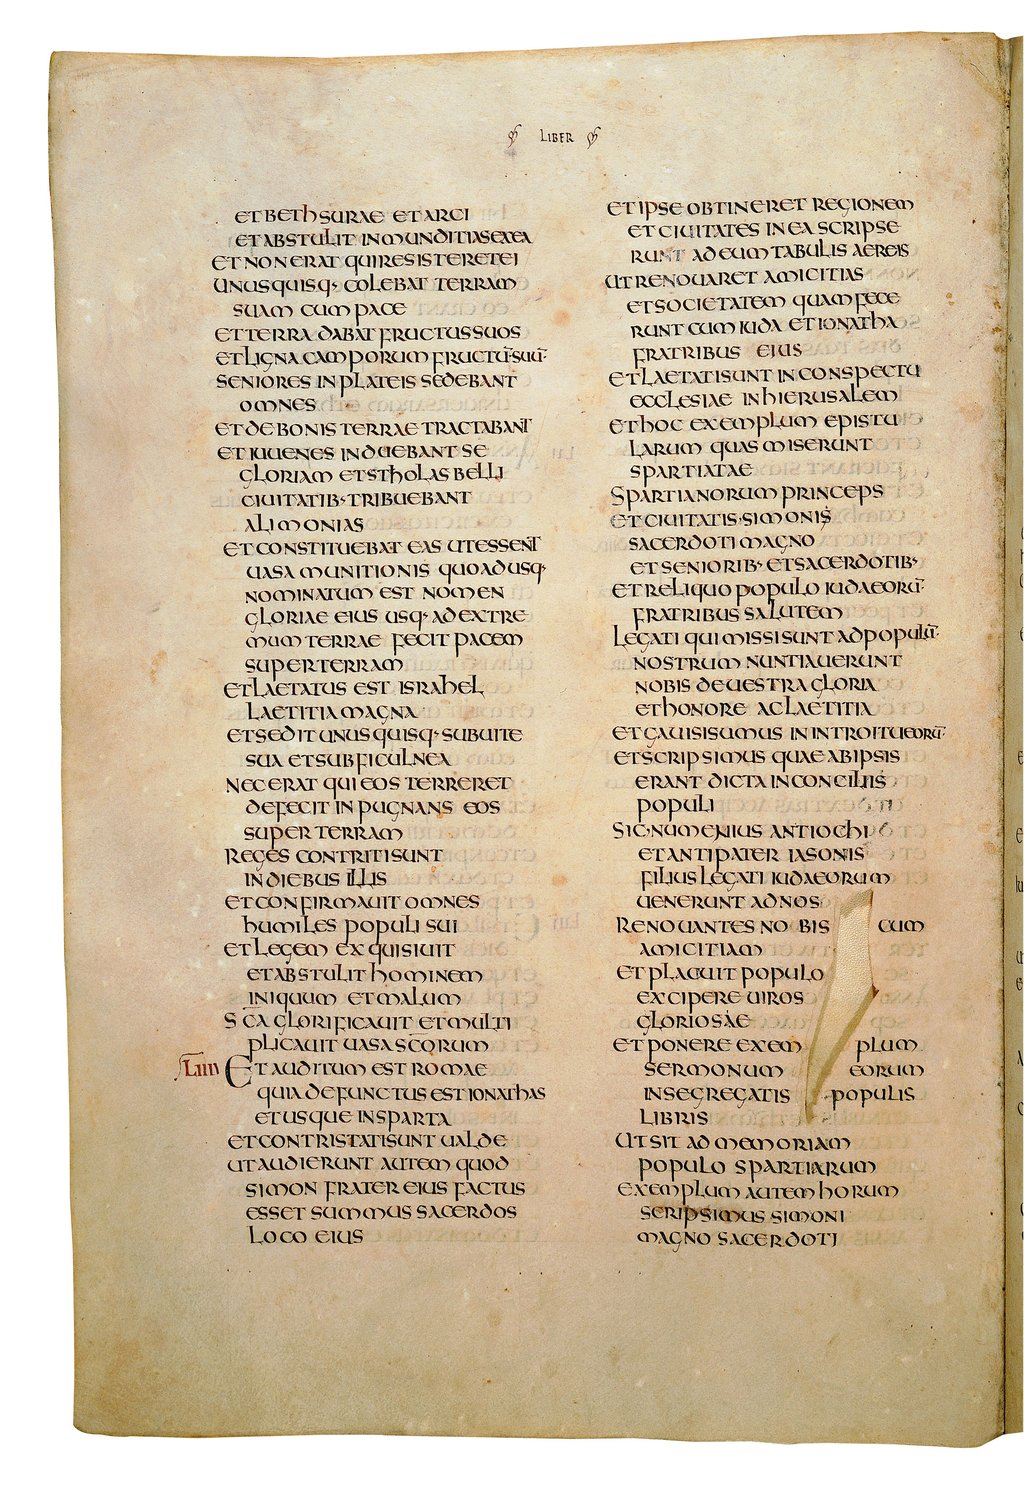 LIBER
ET BETHSURAE ET ARCI
ET ABSTULIT INMUNDITIAS EX EA
ET NON ERAT QUI RESISTERET EI
UNUSQUISQ· COLEBAT TERRAM
SUAM CUM PACE
ET TERRA DABAT FRUCTUS SUOS
ET LIGNA CAMPORUM FRUCTŪ SUŪ·
SENIORES IN PLATEIS SEDEBANT
OMNES
ET DE BONIS TERRAE TRACTABANT
ET IUUENES INDUEBANT SE
GLORIAM ET STHOLAS BELLI
CIUITATIB· TRIBUEBANT
ALIMONIAS
ET CONSTITUEBAT EAS UT ESSENT
UASA MUNITIONIS QUOADUSQ·
NOMINATUM EST NOMEN
GLORIAE EIUS USQ· AD EXTRE
MUM TERRAE FECIT PACEM
SUPER TERRAM
ET LAETATUS EST ISRAHEL
LAETITIA MAGNA
ET SEDIT UNUSQUISQ· SUB UITE
SUA ET SUB FICULNEA
NEC ERAT QUI EOS TERRERET
DEFECIT INPUGNANS EOS
SUPER TERRAM
REGES CONTRITI SUNT
IN DIEBUS ILLIS
ET CONFIRMAUIT OMNES
HUMILES POPULI SUI
ET LEGEM EXQUISIUIT
ET ABSTULIT HOMINEM
INIQUUM ET MALUM
SC̄A GLORIFICAUIT ET MULTI
PLICAUIT UASA SC̄ORUM
LIIII ET AUDITUM EST ROMAE
QUIA DEFUNCTUS EST IONATHAS
ET USQUE IN SPARTA
ET CONTRISTATI SUNT UALDE
UT AUDIERUNT AUTEM QUOD
SIMON FRATER EIUS FACTUS
ESSET SUMMUS SACERDOS
LOCO EIUS
ET IPSE OBTINERET REGIONEM
ET CIUITATES IN EA SCRIPSE
RUNT AD EUM TABULIS AEREIS
UT RENOUARET AMICITIAS
ET SOCIETATEM QUAM FECE
RUNT CUM IUDA ET IONATHA
FRATRIBUS EIUS
ET LAETATI SUNT IN CONSPECTU
ECCLESIAE IN HIERUSALEM
ET HOC EXEMPLUM EPISTU
LARUM QUAS MISERUNT
SPARTIATAE
SPARTIANORUM PRINCEPS
ET CIUITATIS· SIMONIS
SACERDOTI MAGNO
ET SENIORIB· ET SACERDOTIB·
ET RELIQUO POPULO IUDAEORŪ·
FRATRIBUS SALUTEM
LEGATI QUI MISSI SUNT AD POPULŪ·
NOSTRUM NUNTIAUERUNT
NOBIS DE UESTRA GLORIA
ET HONORE AC LAETITIA
ET GAUISI SUMUS IN INTROITU EORŪ·
ET SCRIPSIMUS QUAE AB IPSIS
ERANT DICTA IN CONCILIIS
POPULI
SIC· NUMENIUS ANTIOCHI
ET ANTIPATER IASONIS
FILIUS LEGATI IUDAEORUM
UENERUNT AD NOS
RENOUANTES NOBIS CUM
AMICITIAM
ET PLACUIT POPULO
EXCIPERE UIROS
GLORIOSAE
ET PONERE EXEMPLUM
SERMONUM EORUM
IN SEGREGATIS POPULIS
LIBRIS
UT SIT AD MEMORIAM
POPULO SPARTIARUM
EXEMPLUM AUTEM HORUM
SCRIPSIMUS SIMONI
MAGNO SACERDOTI